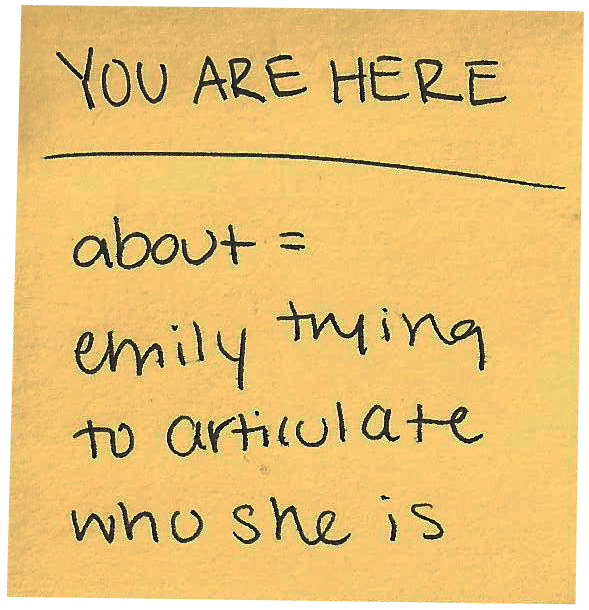 YOU ARE HERE
about =
emily trying
to articulate
who she is